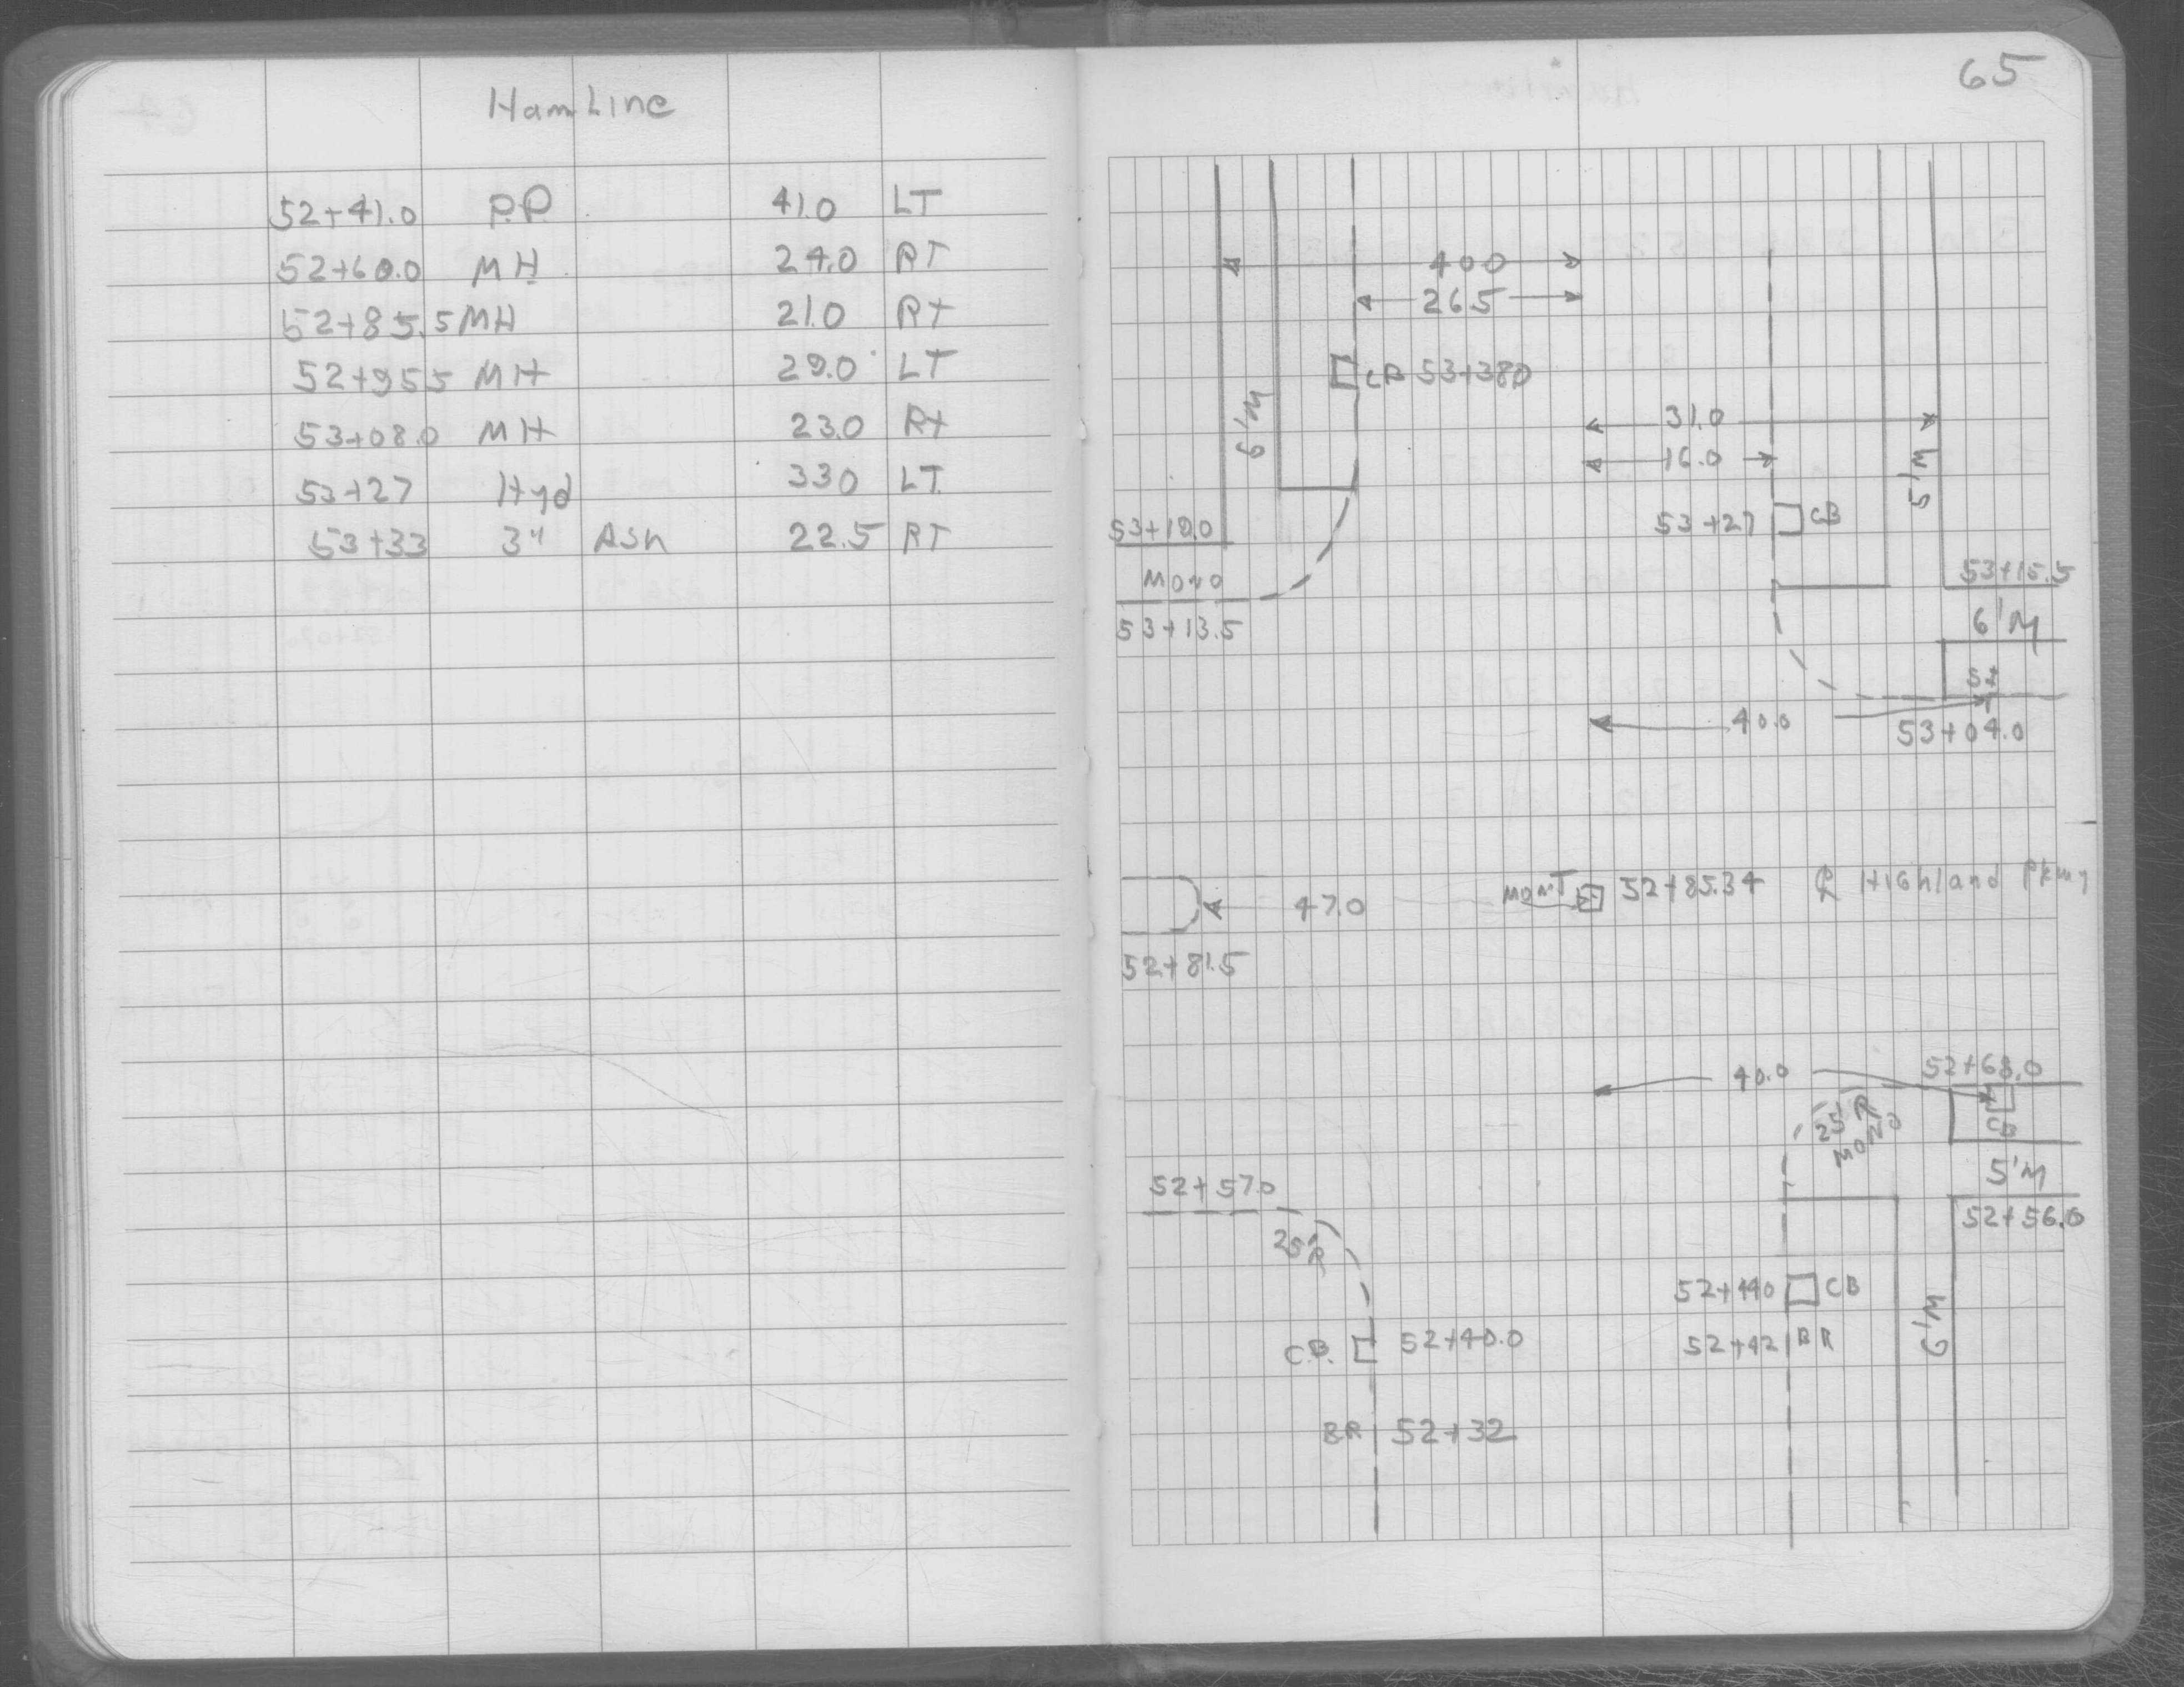 HamLine
52+41.0 P.P. 41.0 LT
52+60.0 MH 24.0 RT
52+85.5 MH 21.0 Rt
52+95 5 MH 29.0 LT
53+08.0 MH 23.0 Rt
53+27 Hyd 33 0 LT
53+33 3" Ash 22.5 RT
65
40 0
26 5
CB 53+38 0
6'M
31.0
16.0
5'M
53+27 CB
53+19.0
Mono
53+13.5
53+15.5
6'M
40.0
53+04.0
47.0
MonT 52+85.34 ℄ Highland Pkwy
52+81.5
40.0
52+68.0
25 R
MONO
CB
5'M
52+56.0
52+57.0
25 R
52+44 0 CB
52+42 BR
6'M
C.B. 52+40.0
B.R 52+32